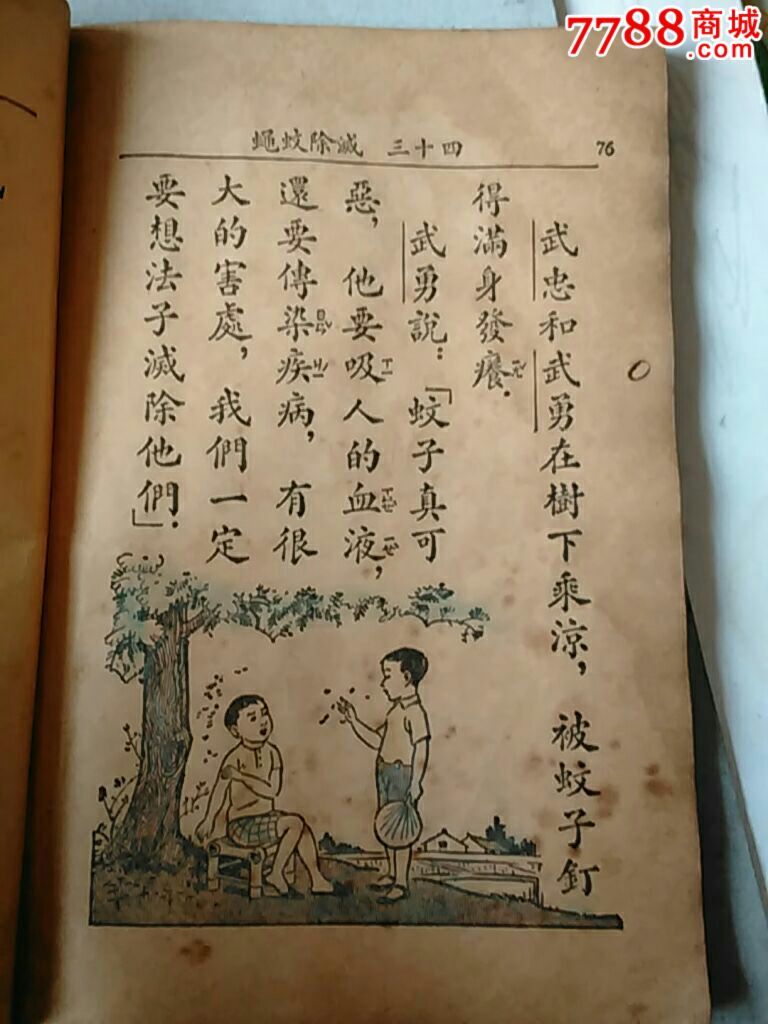 7788商城
.com
76
四十三 滅除蚊蠅
武忠和武勇在樹下乘涼，被蚊子釘
得滿身發癢．
武勇說：「蚊子真可
惡，他要吸人的血液，
還要傳染疾病，有很
大的害處，我們一定
要想法子滅除他們」．